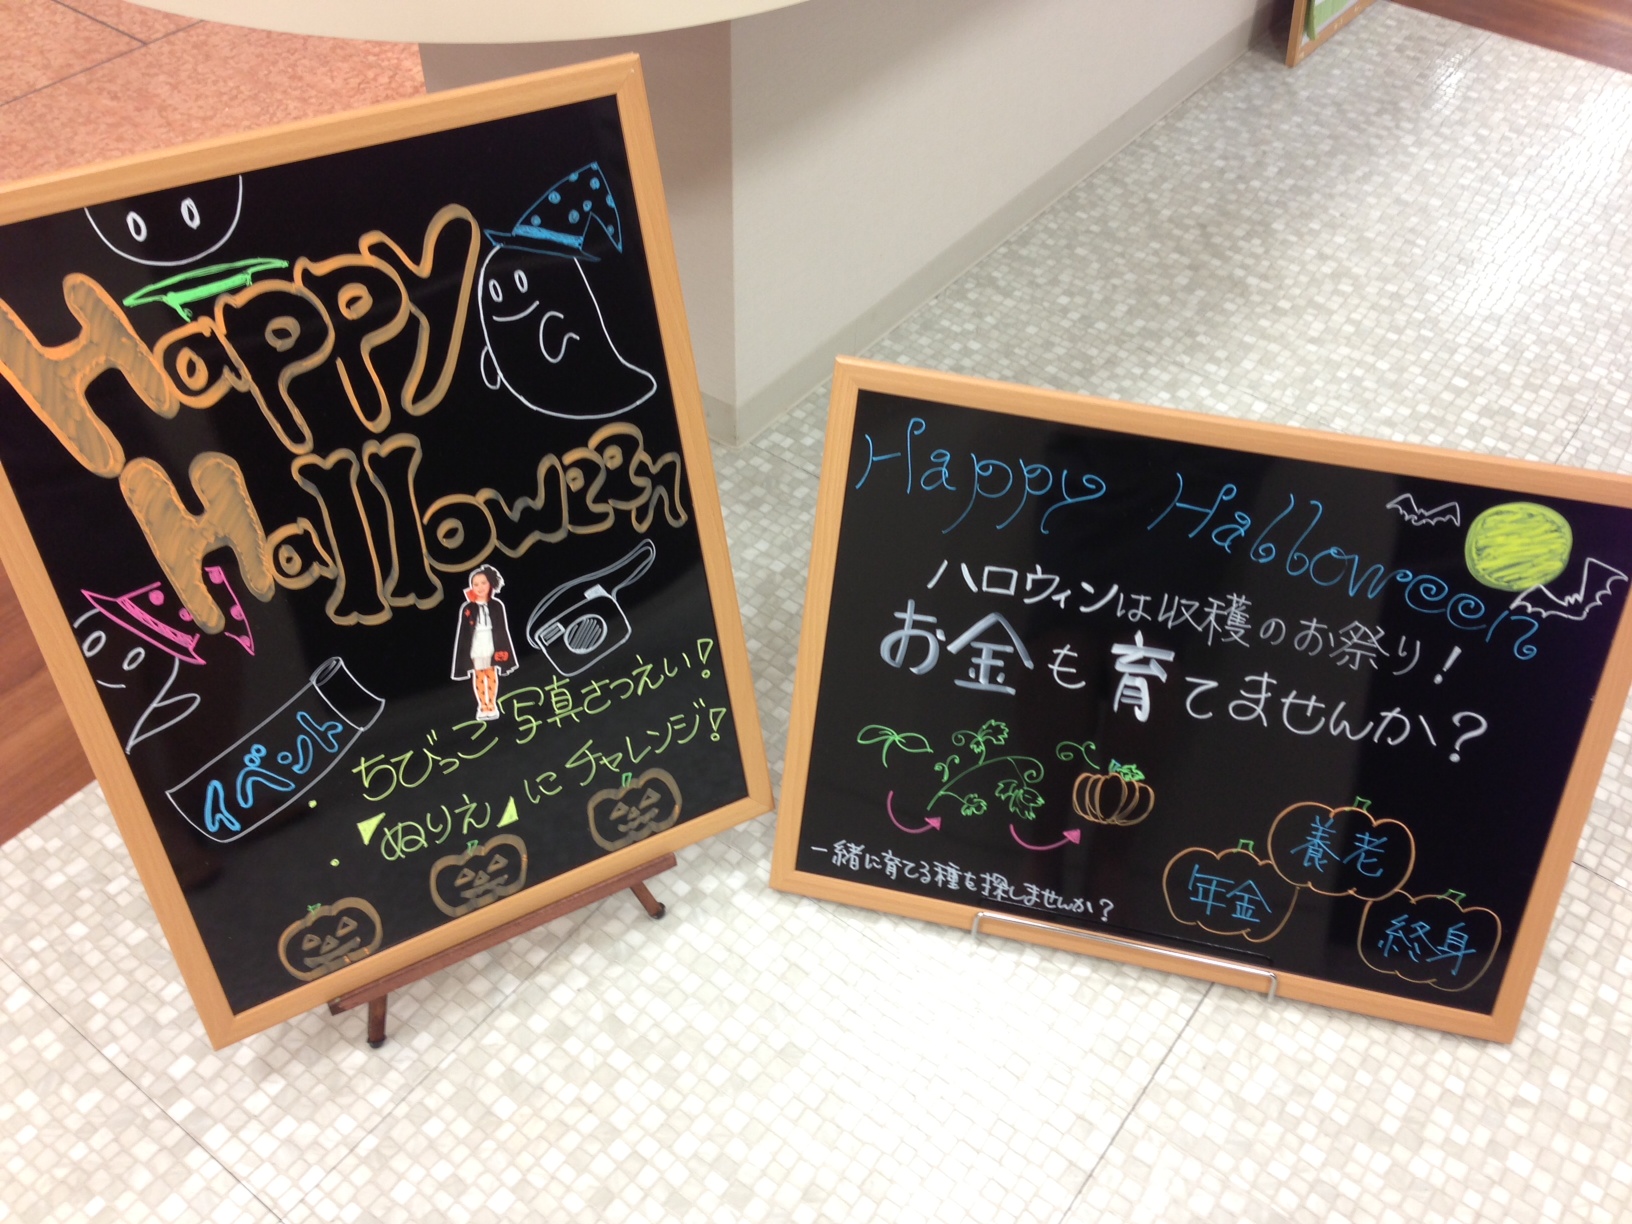 Happy
Halloween
イベント
・ちびっこ写真さつえい!
・「ぬりえ」にチャレンジ!
Happy Halloween
ハロウィンは収穫のお祭り!
お金も育てませんか?
一緒に育てる種を探しませんか?
養老
年金
終身